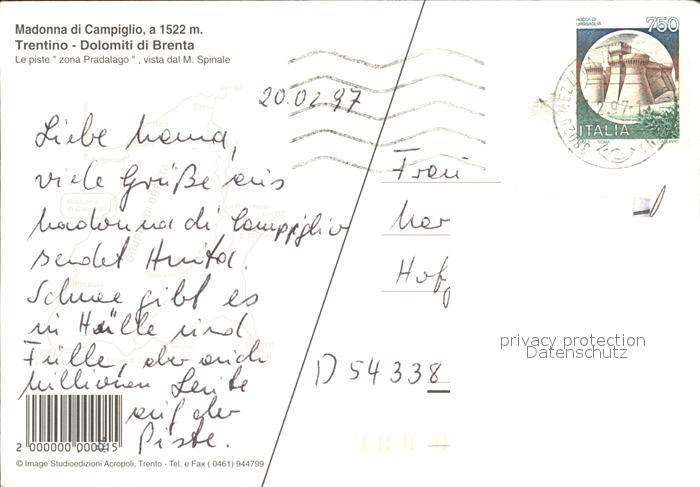 Madonna di Campiglio, a 1522 m.
Trentino - Dolomiti di Brenta
Le piste " zona Pradalago " , vista dal M. Spinale
20.02.97
Liebe Mama,
viele Grüße aus
Madonna di Campiglio
sendet
Schnee gibt es
in Hülle und
Fülle, aber auch
Millionen Leute
auf der
Piste.
2 000000 000015
© Image Studioedizioni Acropoli, Trento - Tel. e Fax ( 0461) 944799
ROCCA DI
URBISAGLIA
750
ITALIA
Frau
Mar
Hof
D 54338
privacy protection
Datenschutz